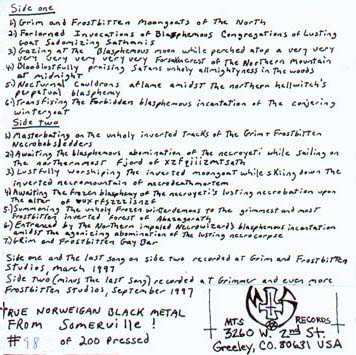 Side one
1) Grim and Frostbitten Moongoats of the North
2) Forlorned Invocations of Blasphemous Congregations of Lusting
Goat Sodomizing Sathanis
3) Gazing at the Blasphemous moon while perched atop a very very
very very very very very Forsaken crest of the Northern Mountain
4) Bloodlustfully praising Satans unholy allmightyness in the woods
at midnight
5) Nocturnal Cauldrons aflame amidst the northern hellwitch's
perpetual blasphemy
6) Transfixing the Forbidden blasphemous incantation of the conjering
wintergoat
Side two
1) Masterbating on the unholy inverted tracks of the Grim & Frostbitten
Necrobobsledders
2) Awaiting the blasphemous abomination of the necroyeti while sailing on
the northernmost Fjord of xzfgiiizmtsath
3) Lustfully worshiping the inverted moongoat while skiing down the
inverted necromountain of necrodeathmortem
4) Awaiting the frozen blasphemy of the necroyeti's lusting necrobation upon
the altar of
5) Summoning the unholy frozen winterdemons to the grimmest and most
frostbitten inverted forest of Abazagorath
6) Entranced by the Northern impaled Necrowizard's blasphemous incantation
amidst the agonizing abomination of the lusting necrocorpse
7) Grim and Frostbitten Gay Bar
Side one and the last song on side two recorded at Grim and Frostbitten
Studios, March 1997
Side two (minus the last song) recorded at Grimmer and even more
Frostbitten Studios, September 1997
TRUE NORWEIGAN BLACK METAL
FROM Somerville!
#98 of 200 pressed
MTS RECORDS
3260 W. 2nd St.
Greeley, CO. 80631 USA